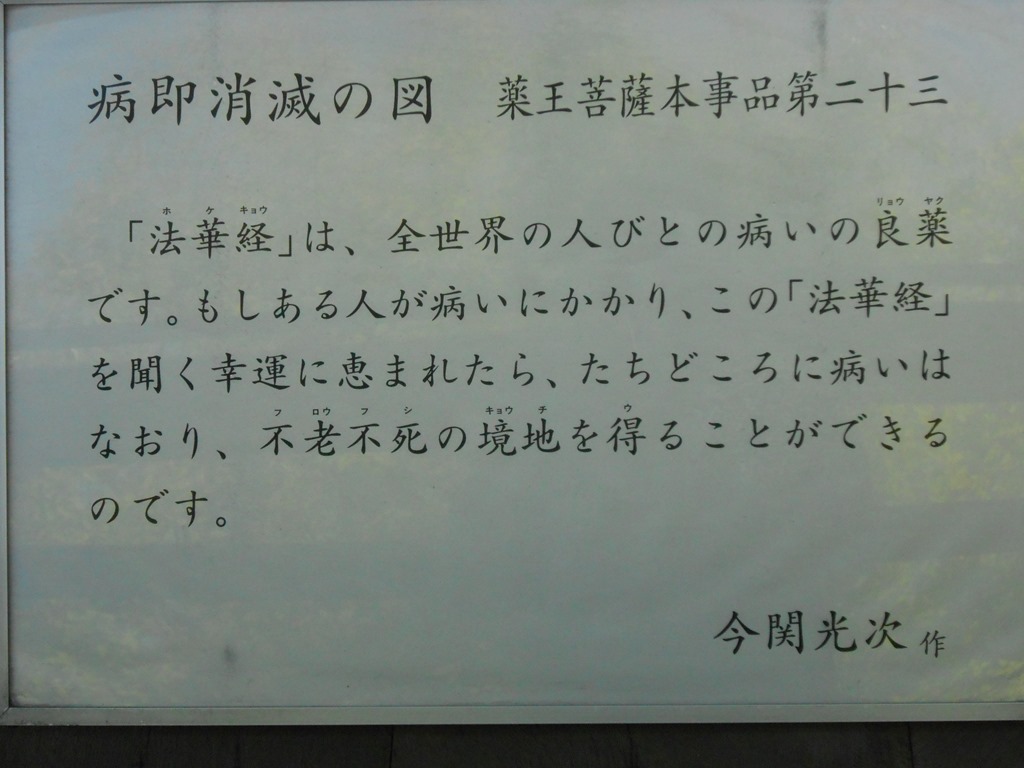 病即消滅の図　薬王菩薩本事品第二十三
「法華経」は、全世界の人びとの病いの良薬
です。もしある人が病いにかかり、この「法華経」
を聞く幸運に恵まれたら、たちどころに病いは
なおり、不老不死の境地を得ることができる
のです。
今関光次 作